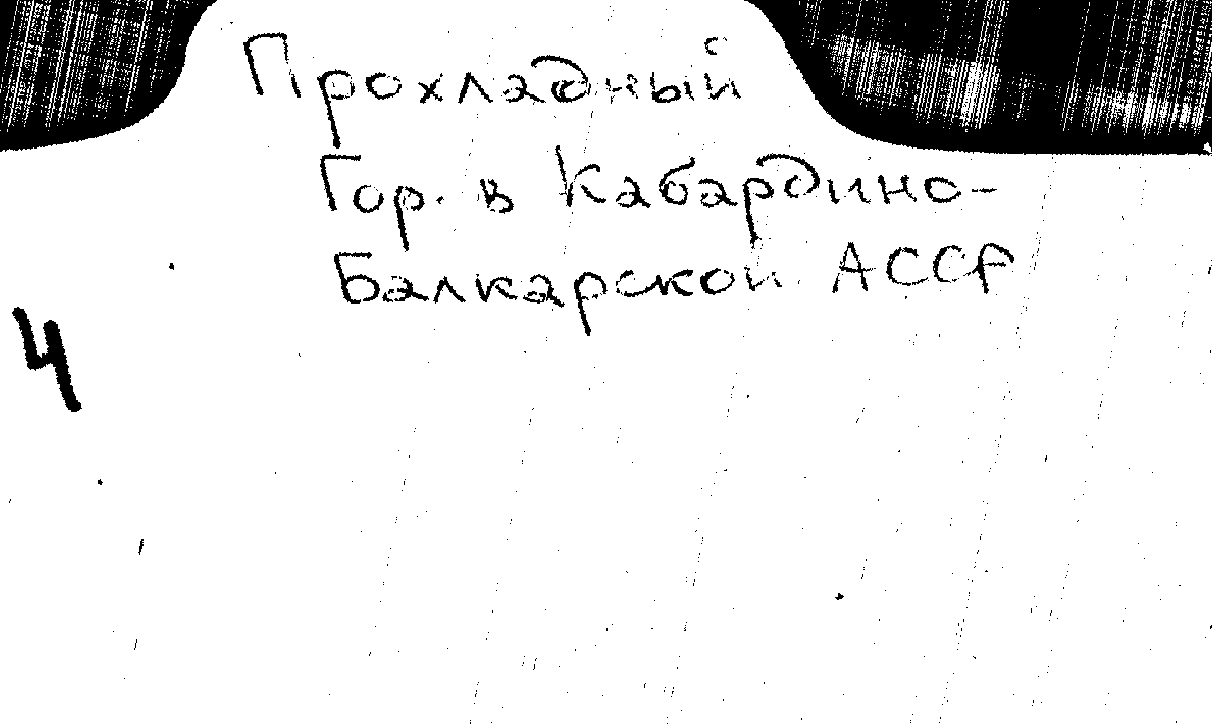 Прохладный
Гор. в Кабардино-
Балкарской АССР
4